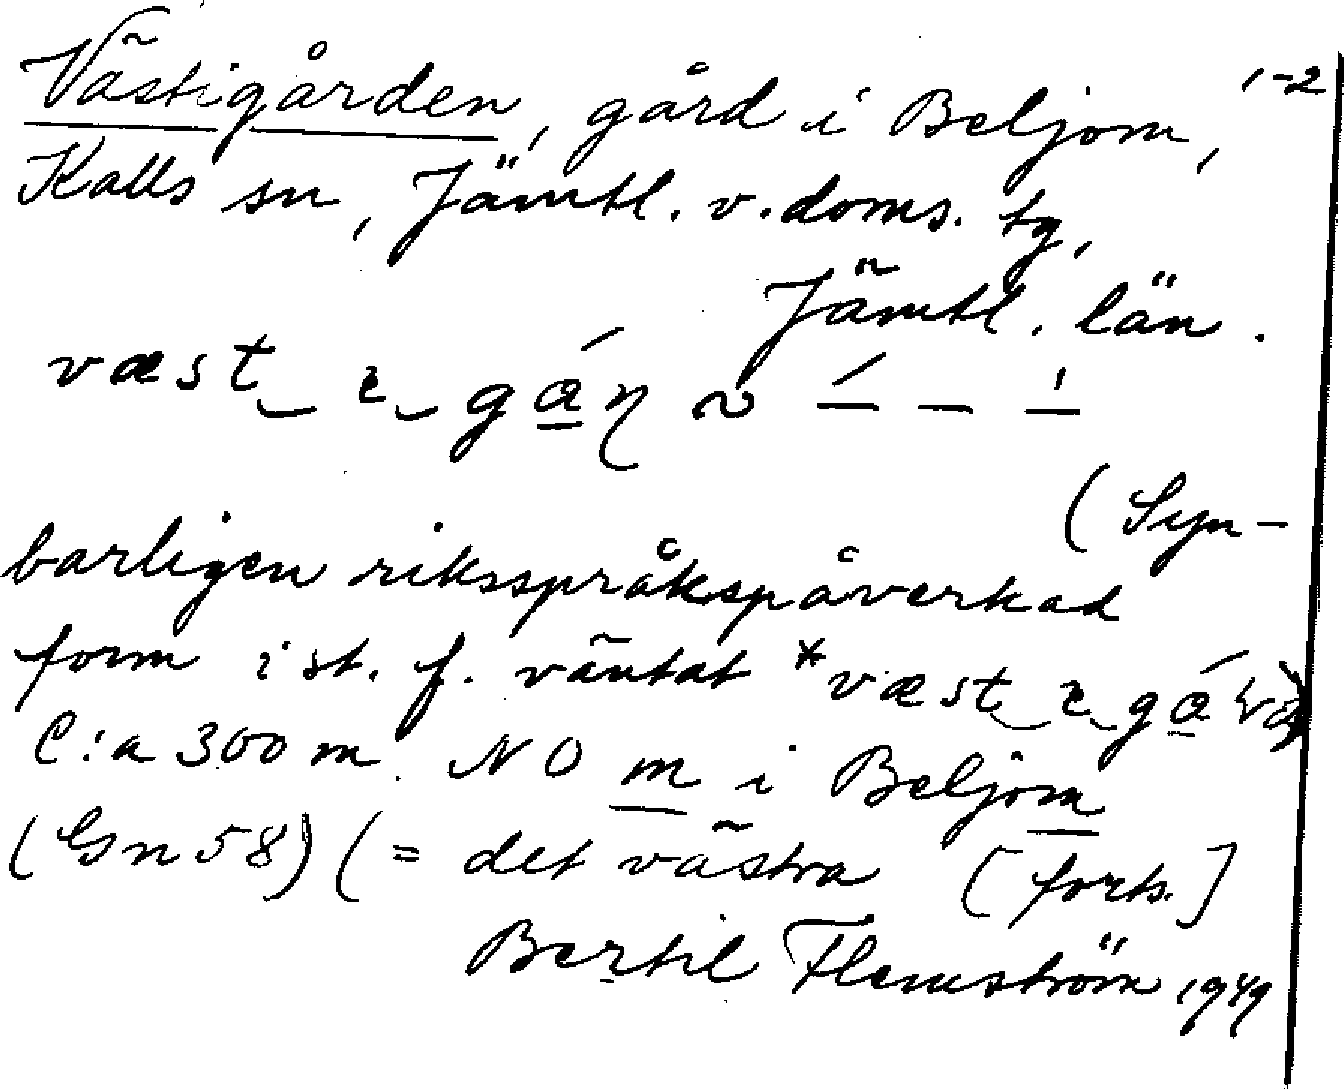 Västigården, gård i Beljom, 1-2
Kalls sn, Jämtl. v. doms. tg,
Jämtl. län.
(Syn-
barligen riksspråkspåverkad
form i st. f. väntat *
C:a 300 m. NO m i Beljom
(Gsn 58) (= det västra [forts.]
Bertil Flemström 1949